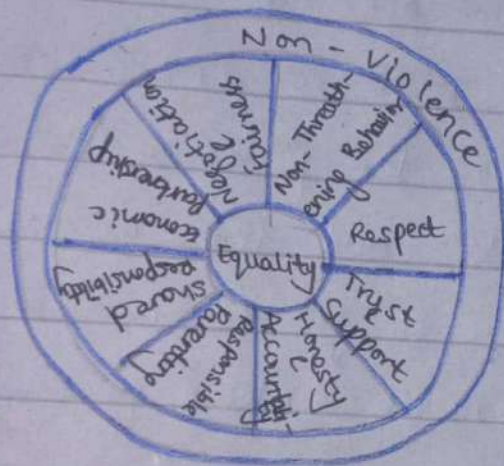 Non - Violence
Non - Threath-
ening Behavior
Respect
Trust
&
Support
Honesty
&
Accountabi-
Responsible
Parenting
Shared
Responsibility
economic
partnership
Negotiation
&
fairness
Equality